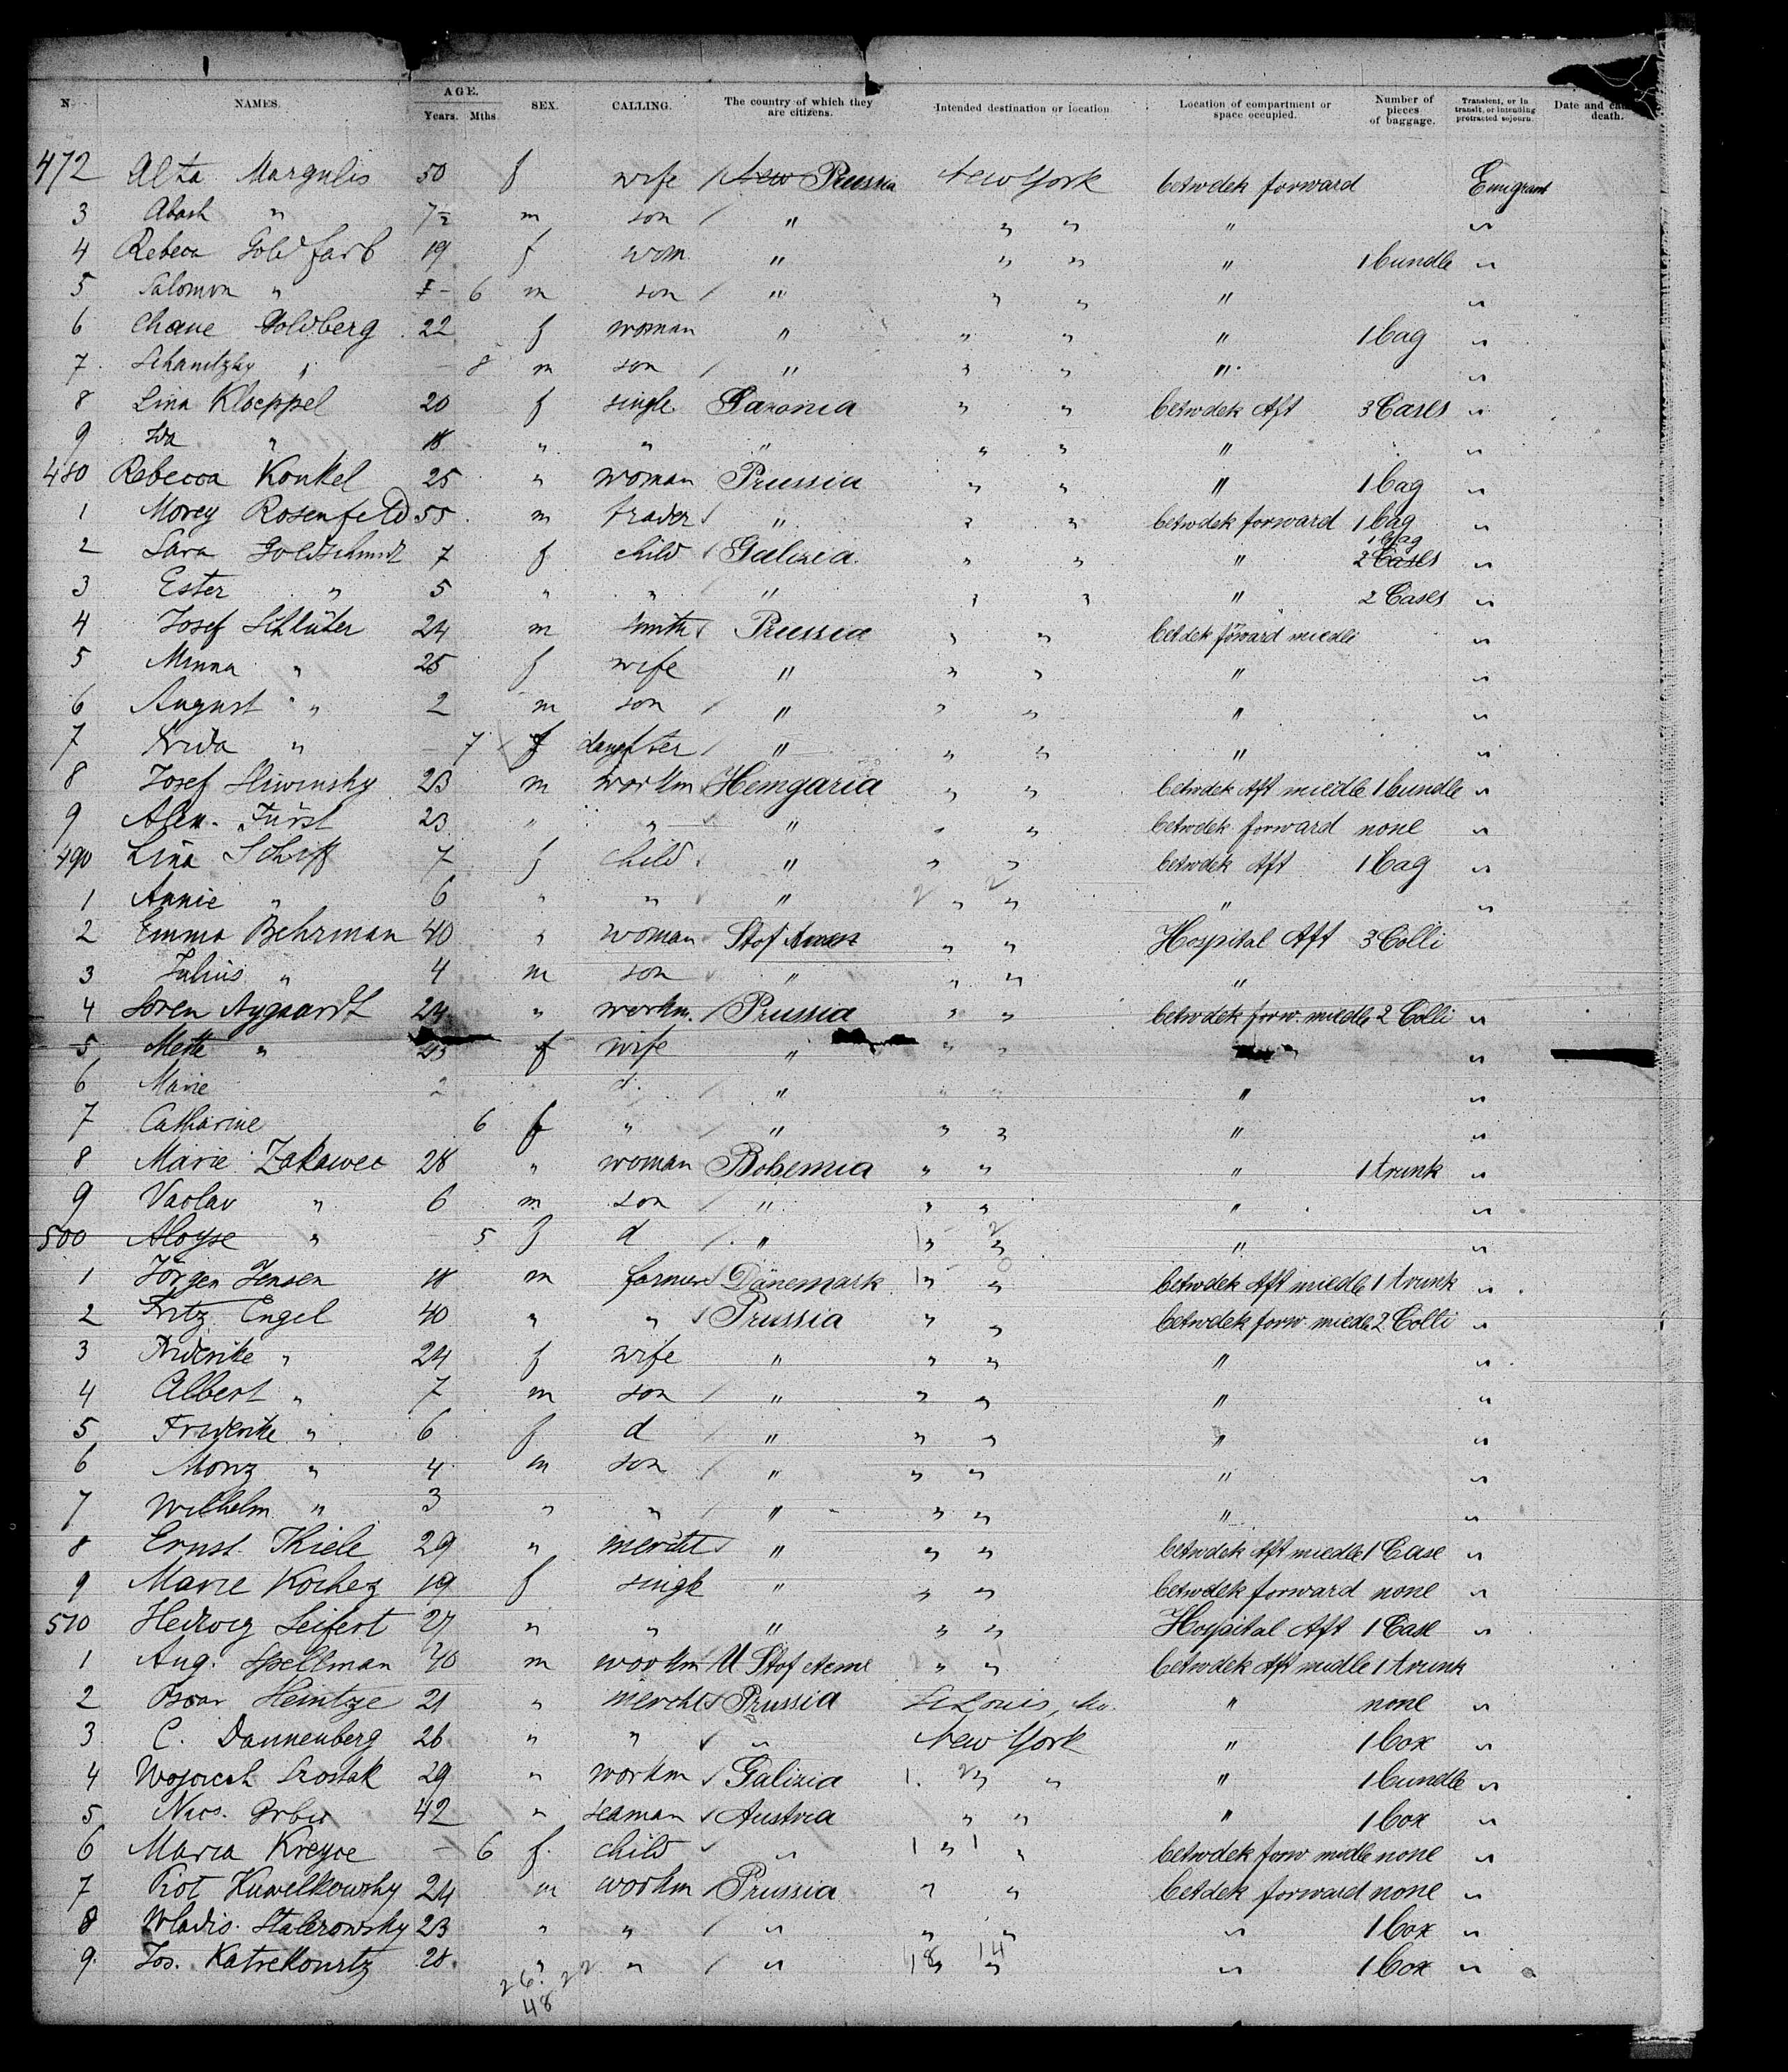 N. NAMES. AGE. Years. Mths. SEX. CALLING. The country of which they are citizens. Intended destination or location. Location of compartment or space occupied. Number of pieces of baggage. Transient, or in transit, or intending protracted sojourn. Date and death.
472 Alta Margulis 50 f wife Prussia New York betwdek forward Emigrant
3 Abash " 7 m son " " " " "
4 Rebeca Goldfarb 19 f wom " " " " 1 bundle "
5 Salomon " 6 m son " " " " "
6 Chane Goldberg 22 f woman " " " " 1 bag "
7 " 8 m son " " " " "
8 Lina Kloeppel 20 f single Saxonia " " betwdek Aft 3 Cases "
9 Ida " 18 " " " " " " "
480 Rebecca Konkel 25 " woman Prussia " " " 1 bag "
1 Morey Rosenfeld 55 m trader " " " betwdek forward 1 bag "
2 Sara Goldschmidt 7 f child Galizia " " " 1 bag 2 Cases "
3 Ester " 5 " " " " " " 2 Cases "
4 Josef Schlüter 24 m smith Prussia " " betdek forward miedle "
5 Minna " 25 f wife " " " " "
6 August " 2 m son " " " " "
7 Frida " 7 f daughter " " " " "
8 Josef Sliwinsky 23 m workm Hemgaria " " betwdek Aft miedle 1 bundle "
9 Alex. Fürst 23 " " " " " betwdek forward none "
490 Lina Schiff 7 f child " " " betwdek Aft 1 bag "
1 Annie " 6 " " " " " " "
2 Emma Behrman 40 " woman Stof Amer " " Hospital Aft 3 Colli
3 Julius " 4 m son " " " "
4 Soren Nygaardt 24 " workm. Prussia " " betwdek forw. miedle 2 Colli "
5 Mette " 23 f wife " " " "
6 Marie 2 d. " " "
7 Catharine 6 f " " " " " "
8 Marie Zakawec 28 " woman Bohemia " " " 1 trunk "
9 Vaclav " 6 m son " " " " "
500 Aloyse " 5 f d " " " " "
1 Jörgen Jensen 18 m farmer Dänemark " " betwdek Aft miedle 1 trunk "
2 Fritz Engel 40 " " Prussia " " betwdek forw. miedle 2 Colli "
3 Friderike " 24 f wife " " " " "
4 Albert " 7 m son " " " " "
5 Friderike " 6 f d " " " " "
6 Moriz " 4 m son " " " " "
7 Wilhelm " 3 " " " " " " "
8 Ernst Thiele 29 " mercht " " " betwdek Aft miedle 1 Case "
9 Marie Kochez 19 f single " " " betwdek forward none "
510 Hedwig Seifert 27 " " " " " Hospital Aft 1 Case "
1 Aug. Spellman 40 m workm U Stof Ame " " betwdek Aft midle 1 trunk
2 Oscar Heintze 21 " mercht Prussia St Louis, Mo. " none "
3 C. Dannenberg 26 " " " New York " 1 box "
4 Wojciech Szostak 29 " workm Galizia " " " 1 bundle "
5 Nics. Grbic 42 " seaman Austria " " " 1 box "
6 Maria Krejce 6 f. child " " " betwdek forw midle none "
7 Piot Kuwelkowsky 24 m workm Prussia " " betdek forward none "
8 Wladis. Stalerowsky 23 " " " " " " 1 box "
9. Jos. Katrekowitz 28. " " " " " " 1 box "
18 14
26. 22
48